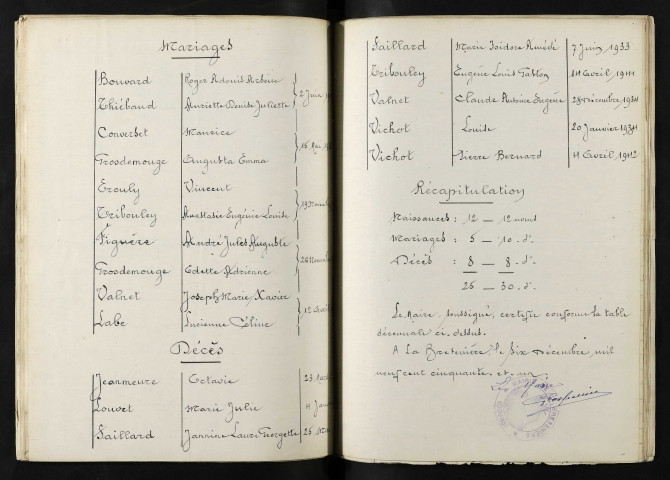 Mariages
Bouvard Roger Adonis
Thiébaud Henriette Denise Juliette 2 Juin
Converset Maurice
Grosdemouge Augusta Emma 15 Mai
Vincent
Tribouley Anne Marie Eugénie Louise 19
Figuére André Jules Auguste
Grosdemouge Odette Adrienne 26
Valnet Joseph Marie Xavier
Labe Lucienne Céline 12 Avril
Décès
Jeanmeure Octavie 23
Louvet Marie Julie 4
Faillard Jannine Laure Georgette 25
Faillard Marie Isidore Amédé 7 Juin 1933
Tribouley Eugène Louis 14 Avril 1941
Valnet Claude Antoine Eugène 28 Décembre 1934
Vichot Louise 20 Janvier 1934
Vichot Pierre Bernard 4 Avril 1942
Récapitulation
Naissances : 12 — 12 noms
Mariages : 5 — 10. d°.
Décès : 8 — 8. d°.
25 — 30. d°.
Le Maire, soussigné, certifie conforme la table
décennale ci. dessus.
A La Bretenière, le six Décembre mil
neuf cent cinquante. et. un.
Le Maire